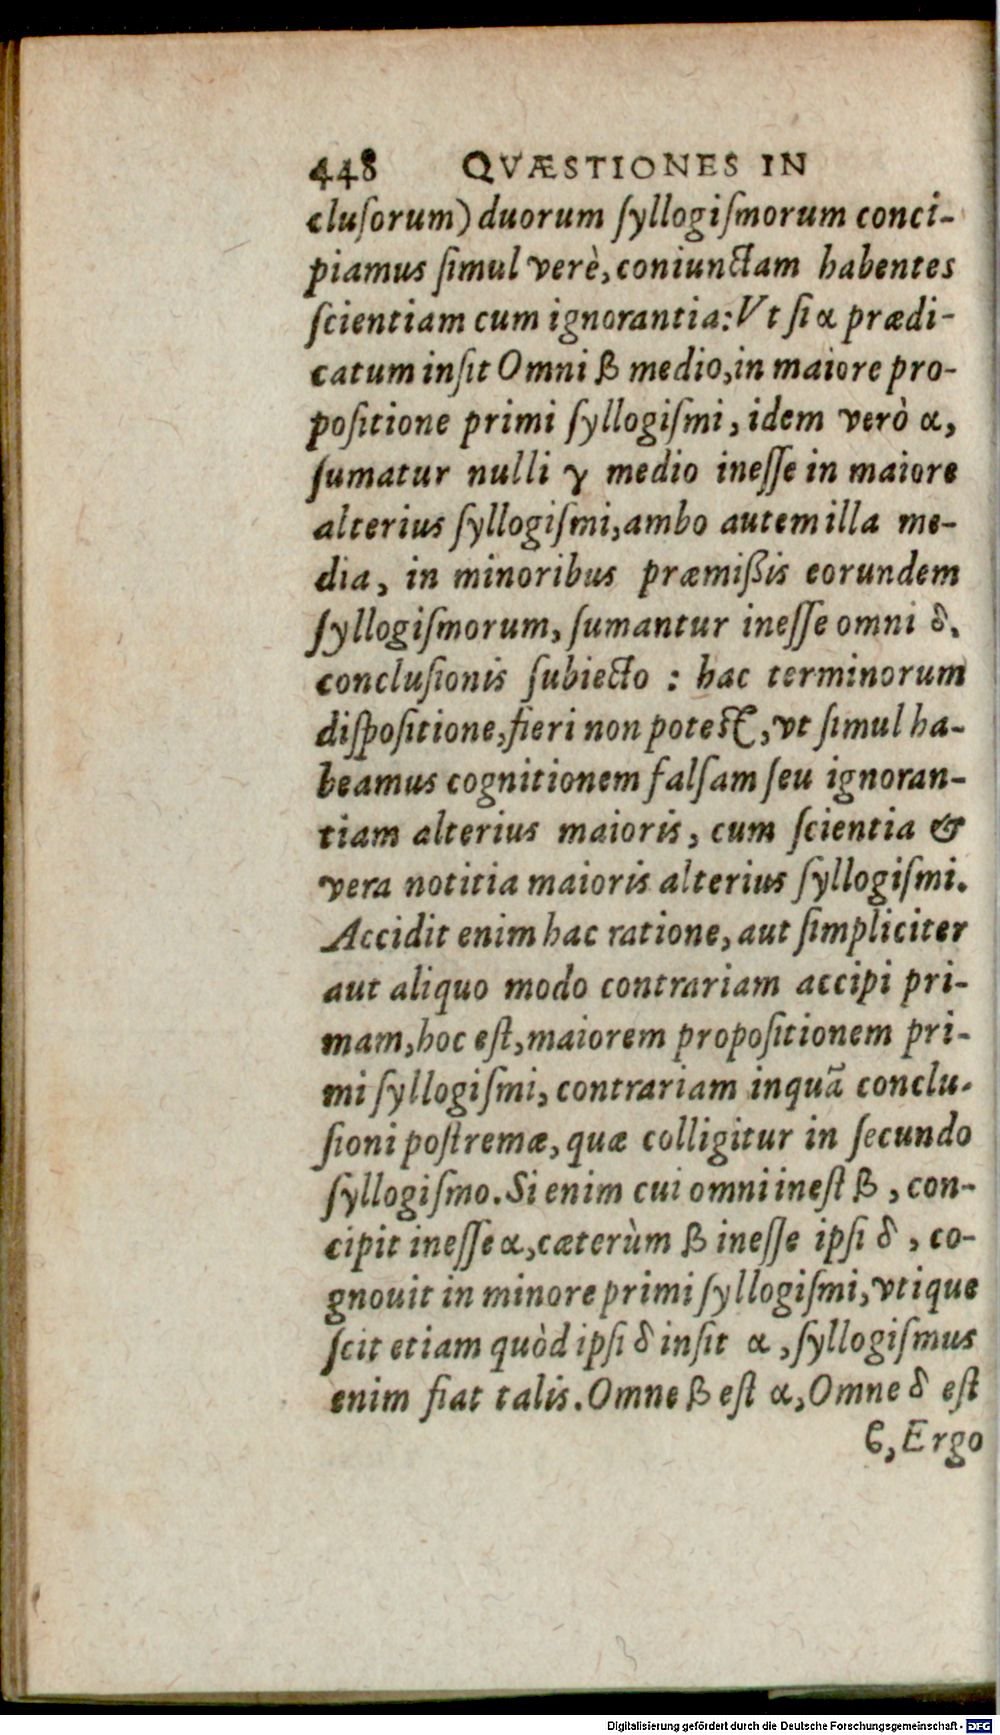 448 QVÆSTIONES IN
cluſorum) duorum ſyllogiſmorum conci-
piamus ſimul verè, coniunctam habentes
ſcientiam cum ignorantia: Vt ſi α prædi-
catum inſit Omni β medio, in maiore pro-
poſitione primi ſyllogiſmi, idem verò α,
ſumatur nulli γ medio ineſſe in maiore
alterius ſyllogiſmi, ambo autem illa me-
dia, in minoribus præmißis eorundem
ſyllogiſmorum, ſumantur ineſſe omni δ.
concluſionis ſubiecto : hac terminorum
diſpoſitione, fieri non poteſt, vt ſimul ha-
beamus cognitionem falſam ſeu ignoran-
tiam alterius maioris, cum ſcientia &
vera notitia maioris alterius ſyllogiſmi.
Accidit enim hac ratione, aut ſimpliciter
aut aliquo modo contrariam accipi pri-
mam, hoc eſt, maiorem propoſitionem pri-
mi ſyllogiſmi, contrariam inquã conclu-
ſioni poſtremæ, quæ colligitur in ſecundo
ſyllogiſmo. Si enim cui omni ineſt β, con-
cipit ineſſe α, cæterùm β ineſſe ipſi δ, co-
gnouit in minore primi ſyllogiſmi, vtique
ſcit etiam quòd ipſi δ inſit α, ſyllogiſmus
enim fiat talis. Omne β eſt α, Omne δ eſt
ϐ, Ergo
Digitalisierung gefördert durch die Deutsche Forschungsgemeinschaft - DFG